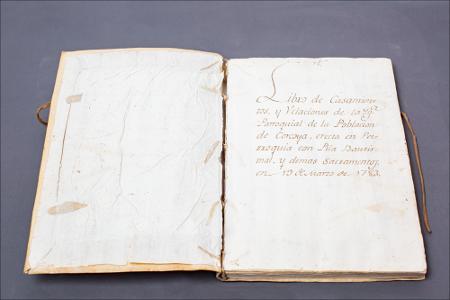 Libro de Casamien-
tos, y Velaciones de la Ygª
Parroquial de la Poblacion
de Corcoya, erecta en Par-
rroquia con Pila Bautis-
mal, y demas Sacramentos,
en 13 de Marzo de 1783.